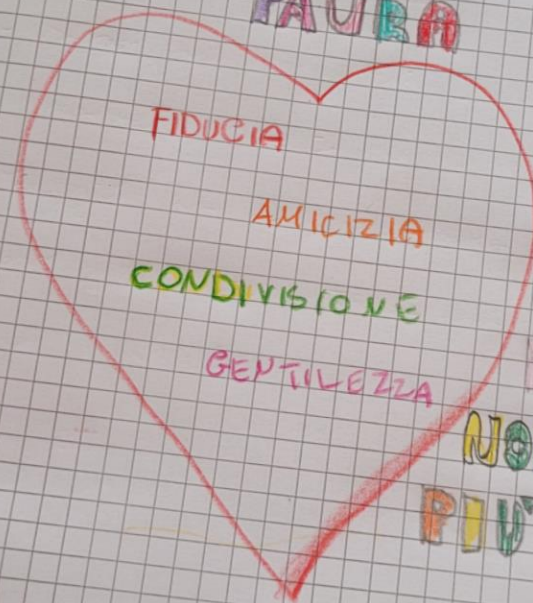 PAURA
FIDUCIA
AMICIZIA
CONDIVISIONE
GENTILEZZA
NO
PIÙ